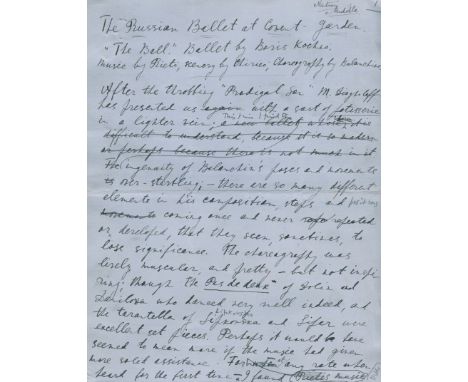 Nation
Athenæum 1
The Russian Ballet at Covent-Garden.
"The Ball." Ballet by Boris Kochno.
Music by Rieti, scenery by Chirico, choregraphy by Balanchin.
After the throbbing "Prodigal Son" M. Diaghileff
has presented us again with a sort of patisserie
in a lighter vein. a new ballet which is
difficult to understand, because it is so modern
or perhaps because there is not much in it
The ingenuity of Balanchin's poses and movements
is over-startling; – there are so many different
elements in his composition, steps and positions
movements coming once and never repeated
or developed, that they seem, sometimes, to
lose significance. The choregraphy was
lively muscular, and pretty – but not inspi-
ring; though the Pas de deux of Dolin and
Danilova who danced very well indeed, and
the tarantella of Lifar were
excellent set pieces. Perhaps it would have
seemed to mean more if the music had given
more solid assistance. For at any rate when
heard for the first time – I found Rieti's music